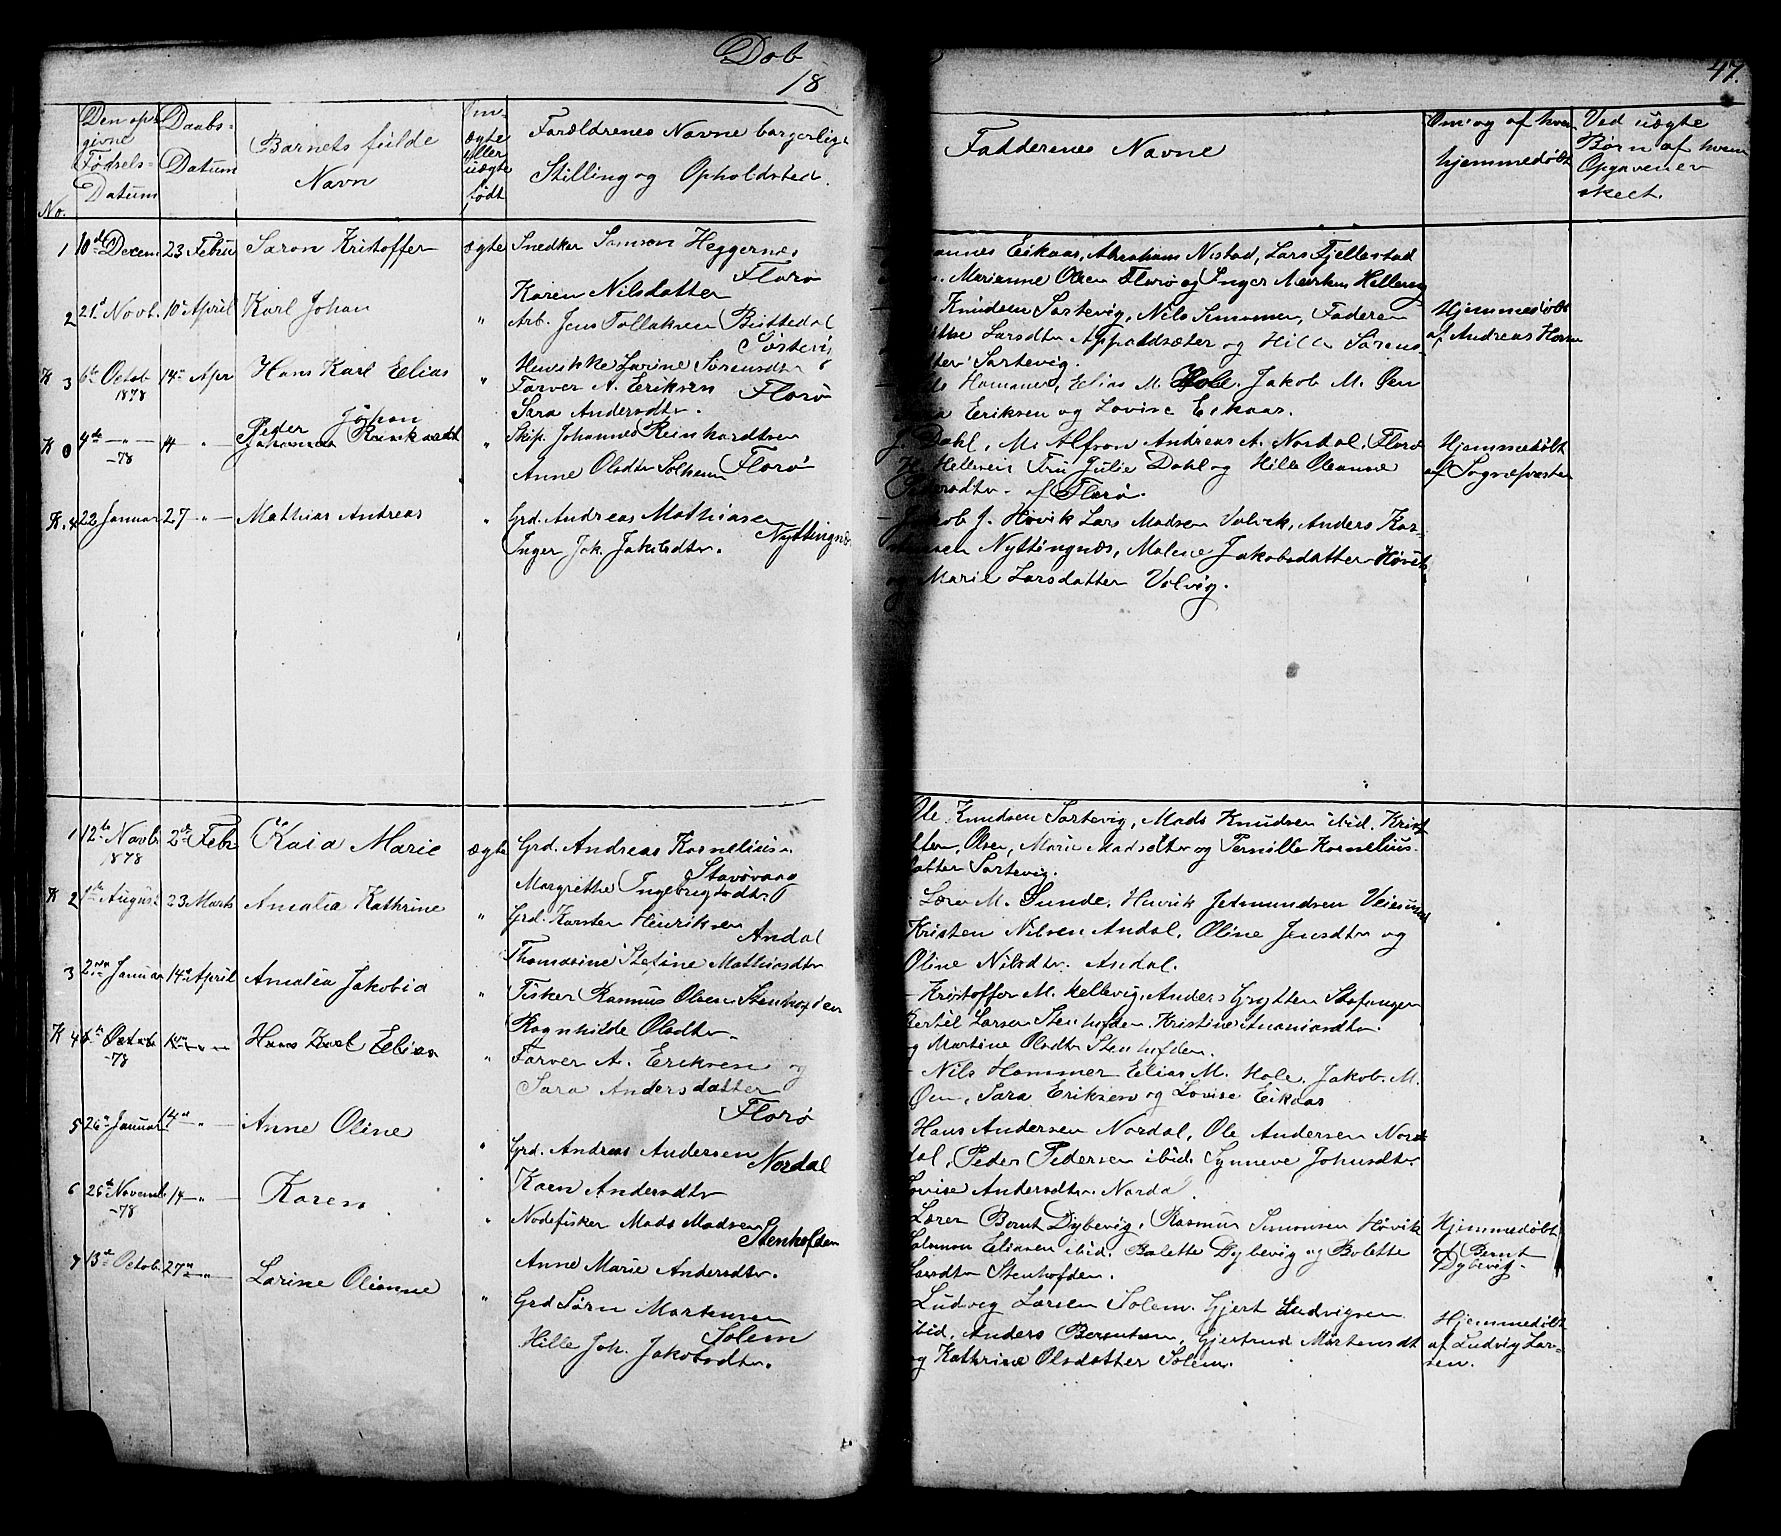 Døb
18
47.
No.
Den op-
givne
Fødsels-
Datum
Daabs-
Datum
Barnets fulde
Navn
Om
ægte
eller
uægte
født
Forældrenes Navne borgerlige
Stilling og Opholdsted.
Faddernes Navne
Om og af hvem
hjemmedøbt
Ved uægte
Børn af hvem
Opgaven er
skeet.
1 10de Decem 23 Febru Saron Kristoffer ægte Snedker Samson Heggernes
Florø
Karen Nilsdatter
Eikaas, Abraham Nistad, Lars Fjellestad
Marianne Olsen Florø og Inger Markus Hellevig
2 21d Novb. 10 April Karl Johan " Arb. Jens Tollaksen
Sørtevig
Larine Sørensdtr
Knudsen Sørtevig, Nils Simonsen, Faderen
Larsdtr og Hille Sørens-
Sørtevig.
Hjemmedøbt
af Andreas
K 3 6te Octob 14 Apr Hans Karl Elias " Farver A. Eriksen Florø
1878
Sara Andersdtr.
Elias M. Hole. Jakob M. Øen
Eriksen og Lovise Eikaas.
K 4te -"- 14 " Peder Johan
Johannes Reinhardt " Skip. Johannes Reinhardtsen
-78
Anne Olsdtr Solheim Florø
J. Dahl, M. Andreas A. Nordal, Florø
Hellevig Fru Julie Dahl og Hille Oleanne
af Florø.
Hjemmedøbt
af Sognepræsten
K. 4 22 Januar 27 -"- Mathias Andreas " Grd. Andreas Mathiasen
Nyttingnæs
Inger Joh. Jakobsdtr.
Jakob J. Høvik Lars Madsen Volvik, Anders Kar-
Nyttingnæs, Malene Jakobsdatter Høvik
og Marie Larsdatter Volvig.
1 12te Novb. 2de Febr Kaia Marie ægte Grd. Andreas Korneliusen
1878
Stavøvaag
Margrethe Ingebrigtsdtr.
Ole Knudsen Sørtevig, Mads Knudsen ibid. Krist
Olsen, Marie Madsdtr og Pernille Kornelius-
datter Sørtevig.
K 2 1te August 23 Marts Amalia Kathrine " Grd. Karsten Henriksen
Andal
Thomasine Stefine Mathiasdtr
Lærer M. Sunde, Henrik Jetmundsen
Kristen Nilsen Andal, Oline Jensdtr og
Oline Nilsdtr. Andal.
3 2den Januar 14 April Amalia Jakobia " Fisker Rasmus Olsen Stenhofden
Ragnhilde Olsdtr
Kristoffer M. Hellevig, Anders Grytten Stafangen
Bertel Larsen Stenhofden, Kristine
og Martine Olsdtr Stenhofden.
K 4 6te Octob 14 -"- Hans Karl Elias " Farver A. Eriksen og
-78
Sara Andersdatter
Florø
Nils Hammer Elias M. Hole, Jakob. M.
Øen, Sara Eriksen og Lovise Eikaas
5 26 Januar 14 -"- Anne Oline " Grd. Andreas Andersen Nordal
Karen Andersdtr
Hans Andersen Nordal, Ole Andersen Nor-
dal, Peder Pedersen ibid. Synneve Johnsdtr
Lovise Andersdtr Nordal.
6 26te Novemb. 14 -"- Karen " Nodefisker Mads Madsen
-78
Stenhofden
Anne Marie Andersdtr.
Lærer Bernt Dybevig, Rasmus Simonsen Høvik
Salomon Eliasen ibid. Bolette Dybevig og Bolette
Larsdtr Stenhofden.
Hjemmedøbt
af Bernt
Dybevig.
7 13de Octob. 27 -"- Larine Olianne " Grd Sørn Mortensen
Solem
Hille Joh. Jakobsdtr.
Ludvig Larsen Solem. Gjert Ludvigsen
ibid, Anders Berntsen, Gjertrud Mortensdt
og Kathrine Olsdatter Solem.
Hjemmedøbt
af Ludvig Lar-
sen.